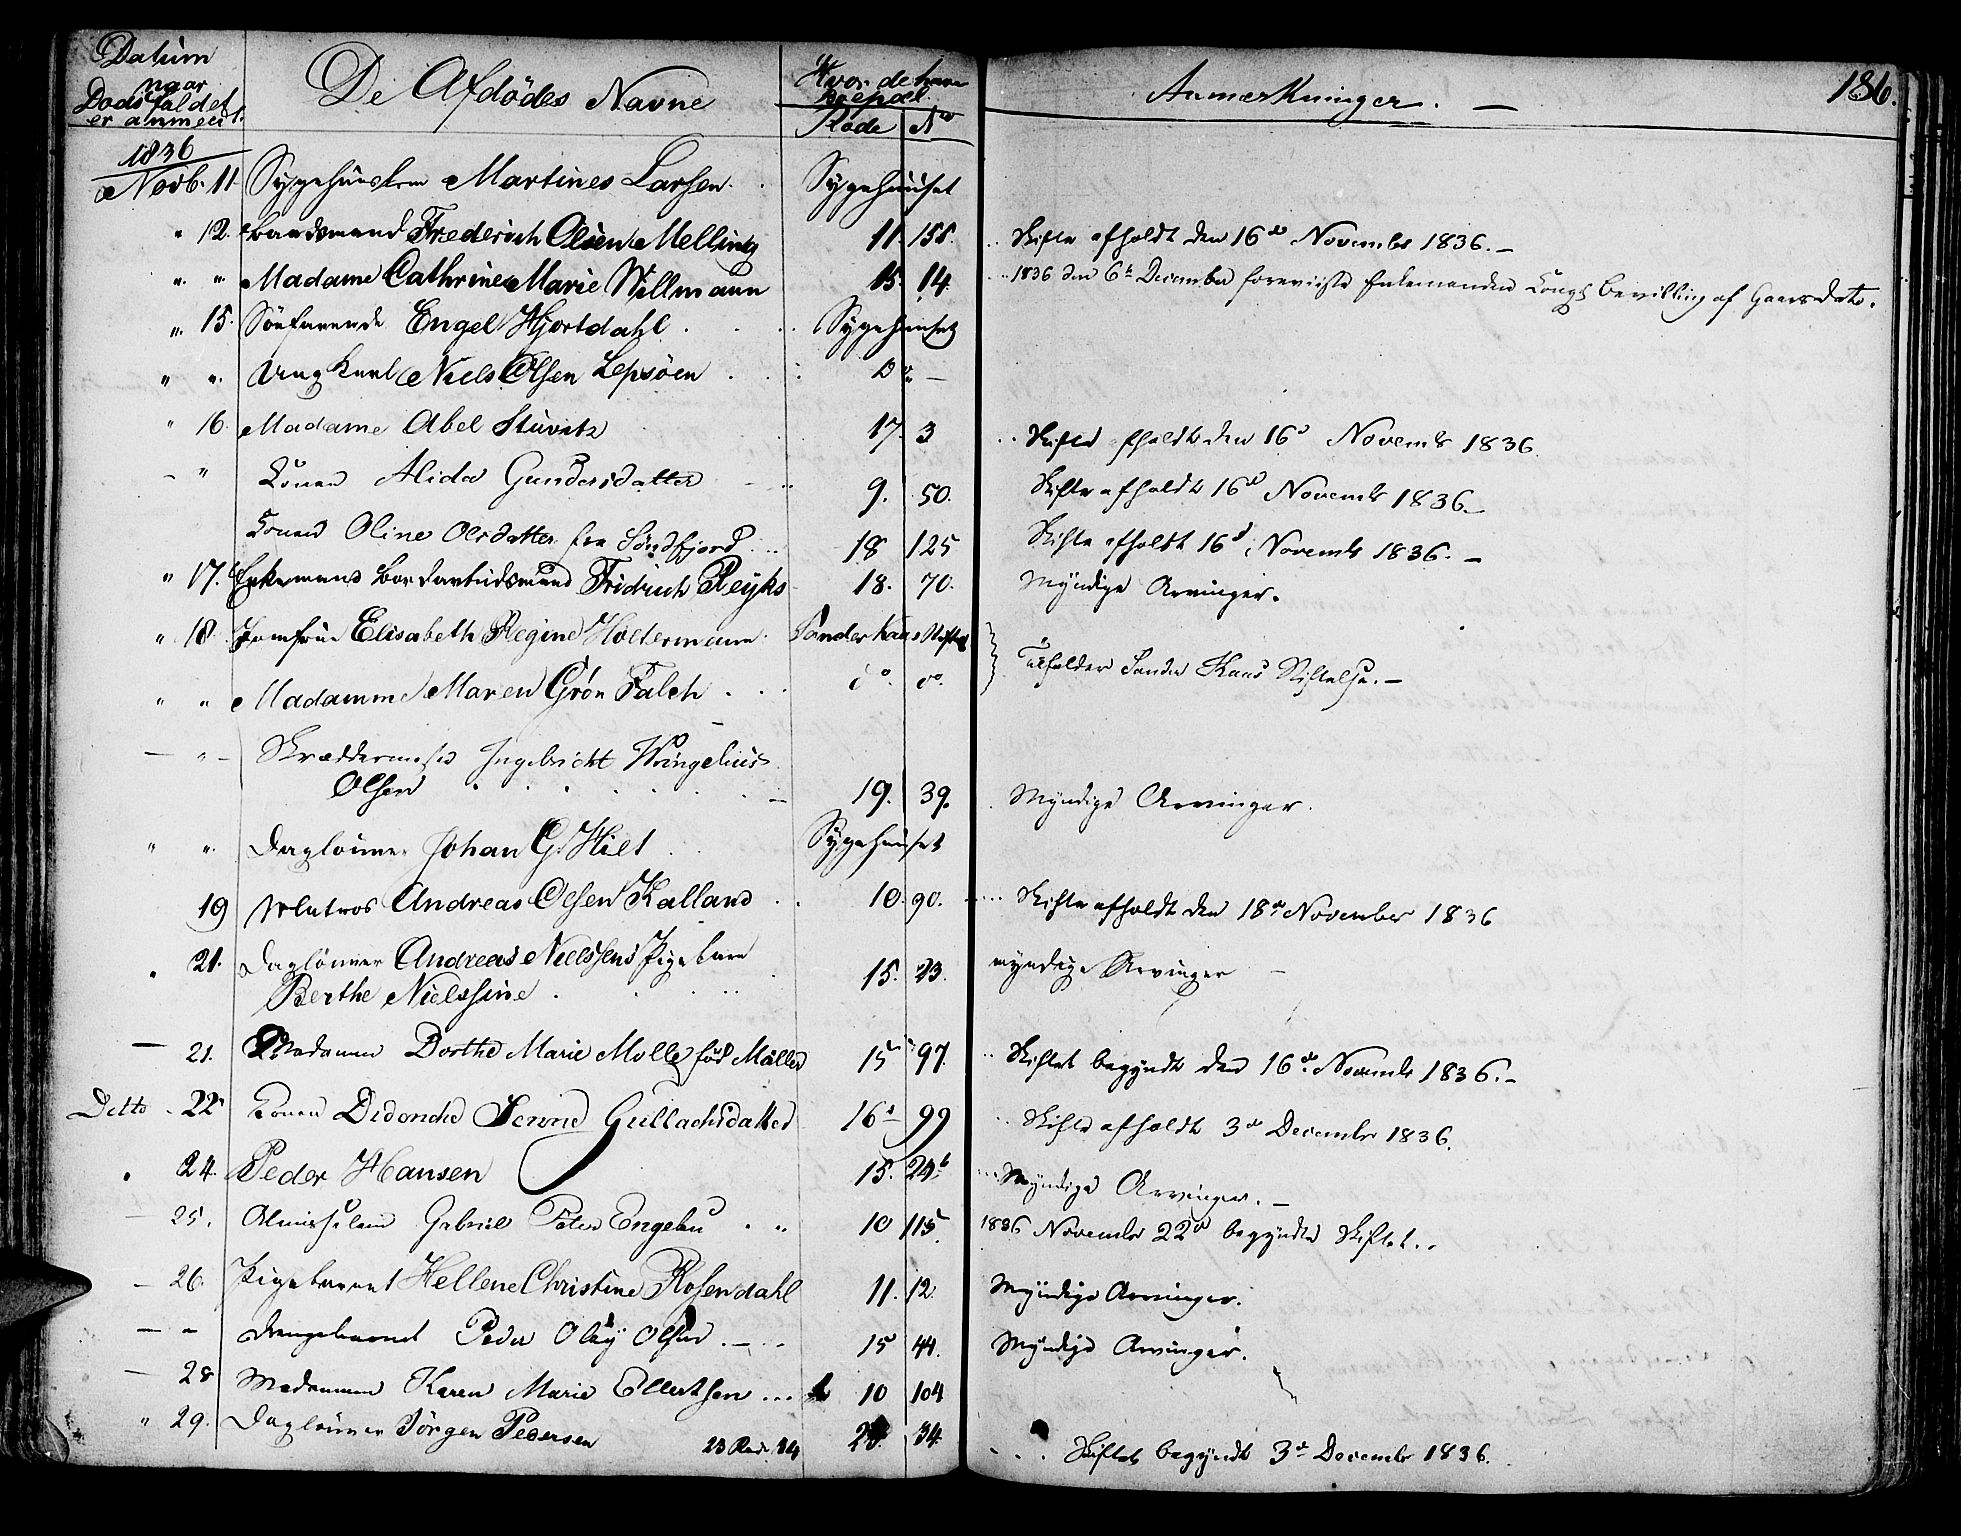 Datum
naar
Dødsfaldet
er anmeldt.
De Afdödes Navne
Hvor de have
boepæl.
Rode No
Anmerkninger. —
186.
1836
Novb. 11. Sygehuuslem Martines Larsen. Sygehuuset
" 12. Frederich Olsen Melling 11. 158. Skifte afholdt den 16de November 1836. —
" " Madame Cathrine Marie Willmann 15. 14. 1836 den 6te December foreviiste Enkemanden Kongl Bevilling af Gaarsdato.
" 15. Søefarende Engel Hjortdahl Sygehuuset
" " Ung Karl Niels Olsen Lepsöen Do —
" 16. Madame Abel Stüvitz 17. 3 Skifte afholdt den 16d Novembr 1836.
— " Konen Alida Gundersdatter 9. 50. Skifte afholdt 16d Novembr 1836. —
Konen Oline Olsdatter fra Söndfjord 18 125 Skifte afholdt 16d Novembr 1836. —
" 17. Enkemand Fridrich Reyks 18. 70. Myndige Arvinger.
" 18. Jomfrue Elisabeth Regine Holtermann Sander Kaas Stiftel
" " Madamme Maren Grön Falch do. do. Tilfalder Sander Kaas Stiftelse. —
— " — Skræddermester Ingebricht Wingelius
Olsen 19. 39. Myndige Arvinger.
" " Daglönner Johan G. Hilt Sygehuuset
19 Matros Andreas Olsen Kalland 10. 90. Skifte afholdt den 18de November 1836
" 21. Daglönner Andreas Nielssens Pigebarn
Berthe Nielssine 15. 23. myndige Arvinger —
— 21. Madamme Dorthe Marie Molle född Möller 15 97. Skiftet begyndt den 16de Novembr 1836. —
Ditto 22 Konen Didericke Gullachsdatter 16 99 Skifte afholdt 3de December 1836.
" 24. Peder Hansen 15. 24b Myndige Arvinger. —
— 25. Gabriel Peter Engelsen 10 115 1836 November 22d begyndte Skiftet.
— 26. Pigebarnet Hellene Christine Rosendahl 11. 12. Myndige Arvinger.
— " Drengebarnet Peder Olaÿ Olsen 15 44. Myndige Arvinger.
— 28 Madamme Karen Marie Ellertsen 10 104
" 29. Daglönner Jörgen Pedersen 23 Rode. 34 34. Skiftet begyndt 3de December 1836.